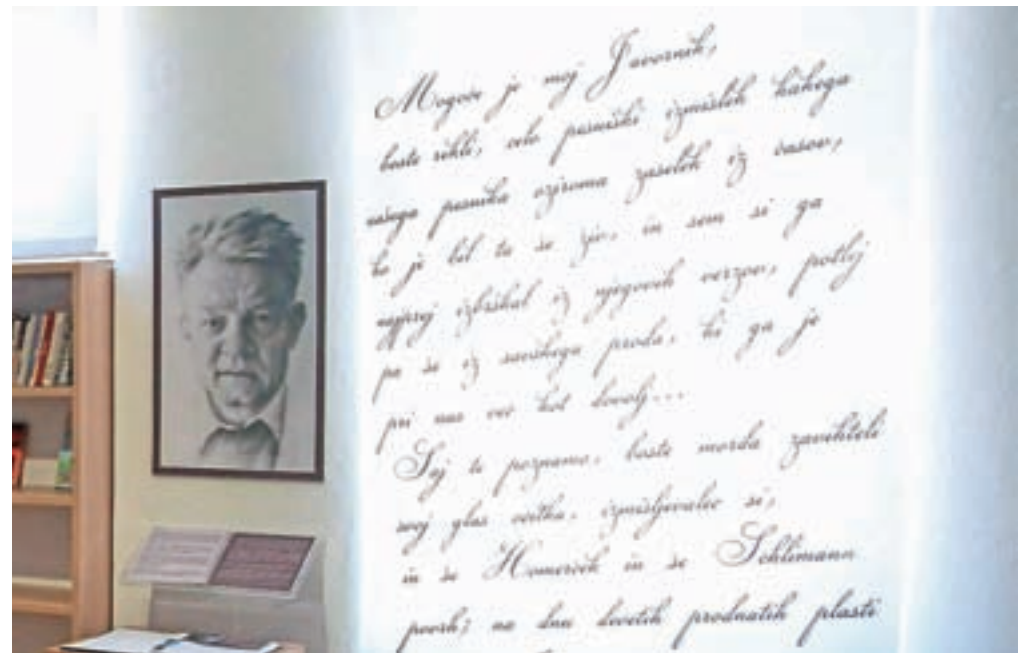 Mogoče je moj Javornik,
boste rekli, celo pesniški izmislek kakega
ušega pesnika oziroma zaselek iz časov,
ko je bil tu še živ, in sem si ga
najprej izbrskal iz njegovih verzov, potlej
pa še iz savskega proda, ki ga je
pri nas več kot dovolj...
Saj te poznamo, boste morda zavihteli
svoj glas očitka, izmišljevalec si,
in še Homerček in še Schlimann
povrh; na dnu devetih prodnatih plasti